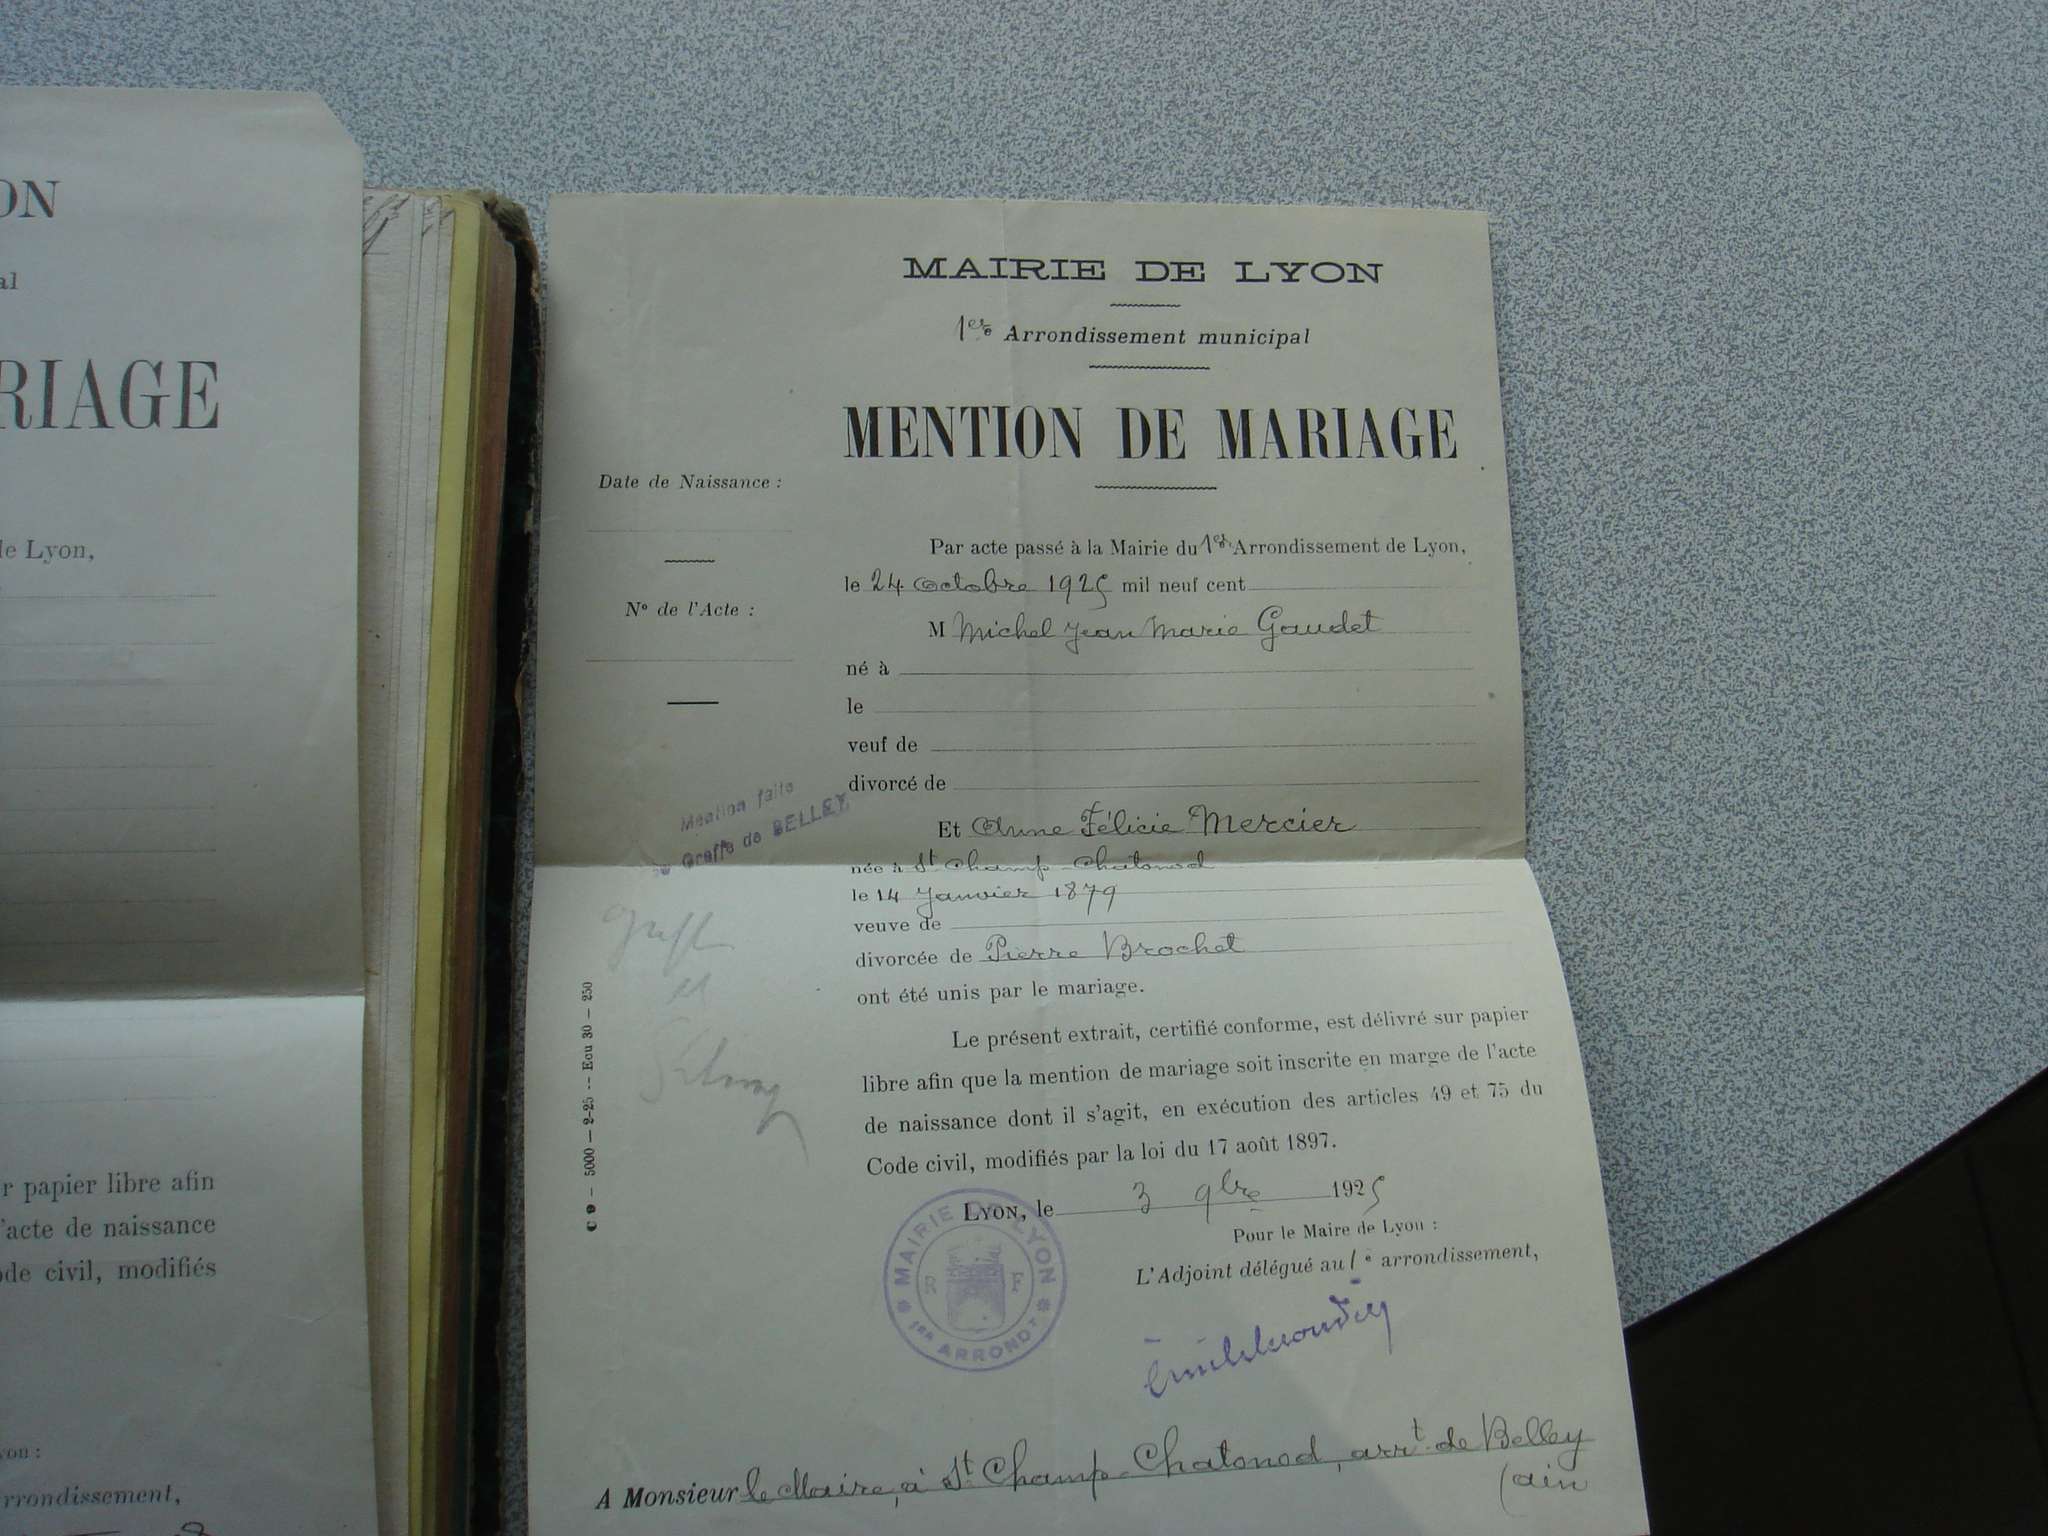 ON
al
RIAGE
de Lyon,
r papier libre afin
l'acte de naissance
ode civil, modifiés
yon :
rrondissement,
MAIRIE DE LYON
1ere Arrondissement municipal
MENTION DE MARIAGE
Date de Naissance :
N° de l'Acte :
Par acte passé à la Mairie du 1er Arrondissement de Lyon,
le 24 Octobre 1925 mil neuf cent
M Michel Jean Marie Gaudet
né à
le
veuf de
divorcé de
Et Anne Félicie Mercier
née à St Champ-Chatonod
le 14 Janvier 1879
veuve de
divorcée de Pierre Brochet
ont été unis par le mariage.
Mention faite
Greffe de BELLEY
Le présent extrait, certifié conforme, est délivré sur papier
libre afin que la mention de mariage soit inscrite en marge de l'acte
de naissance dont il s'agit, en exécution des articles 49 et 75 du
Code civil, modifiés par la loi du 17 août 1897.
LYON, le 3 9bre 1925
Pour le Maire de Lyon :
L'Adjoint délégué au 1e arrondissement,
MAIRIE DE LYON
R F
1ER ARRONDT
5000 — 2-25 -- Ecu 30 — 250
A Monsieur le Maire, à St Champ-Chatonod, arrt de Belley
(ain